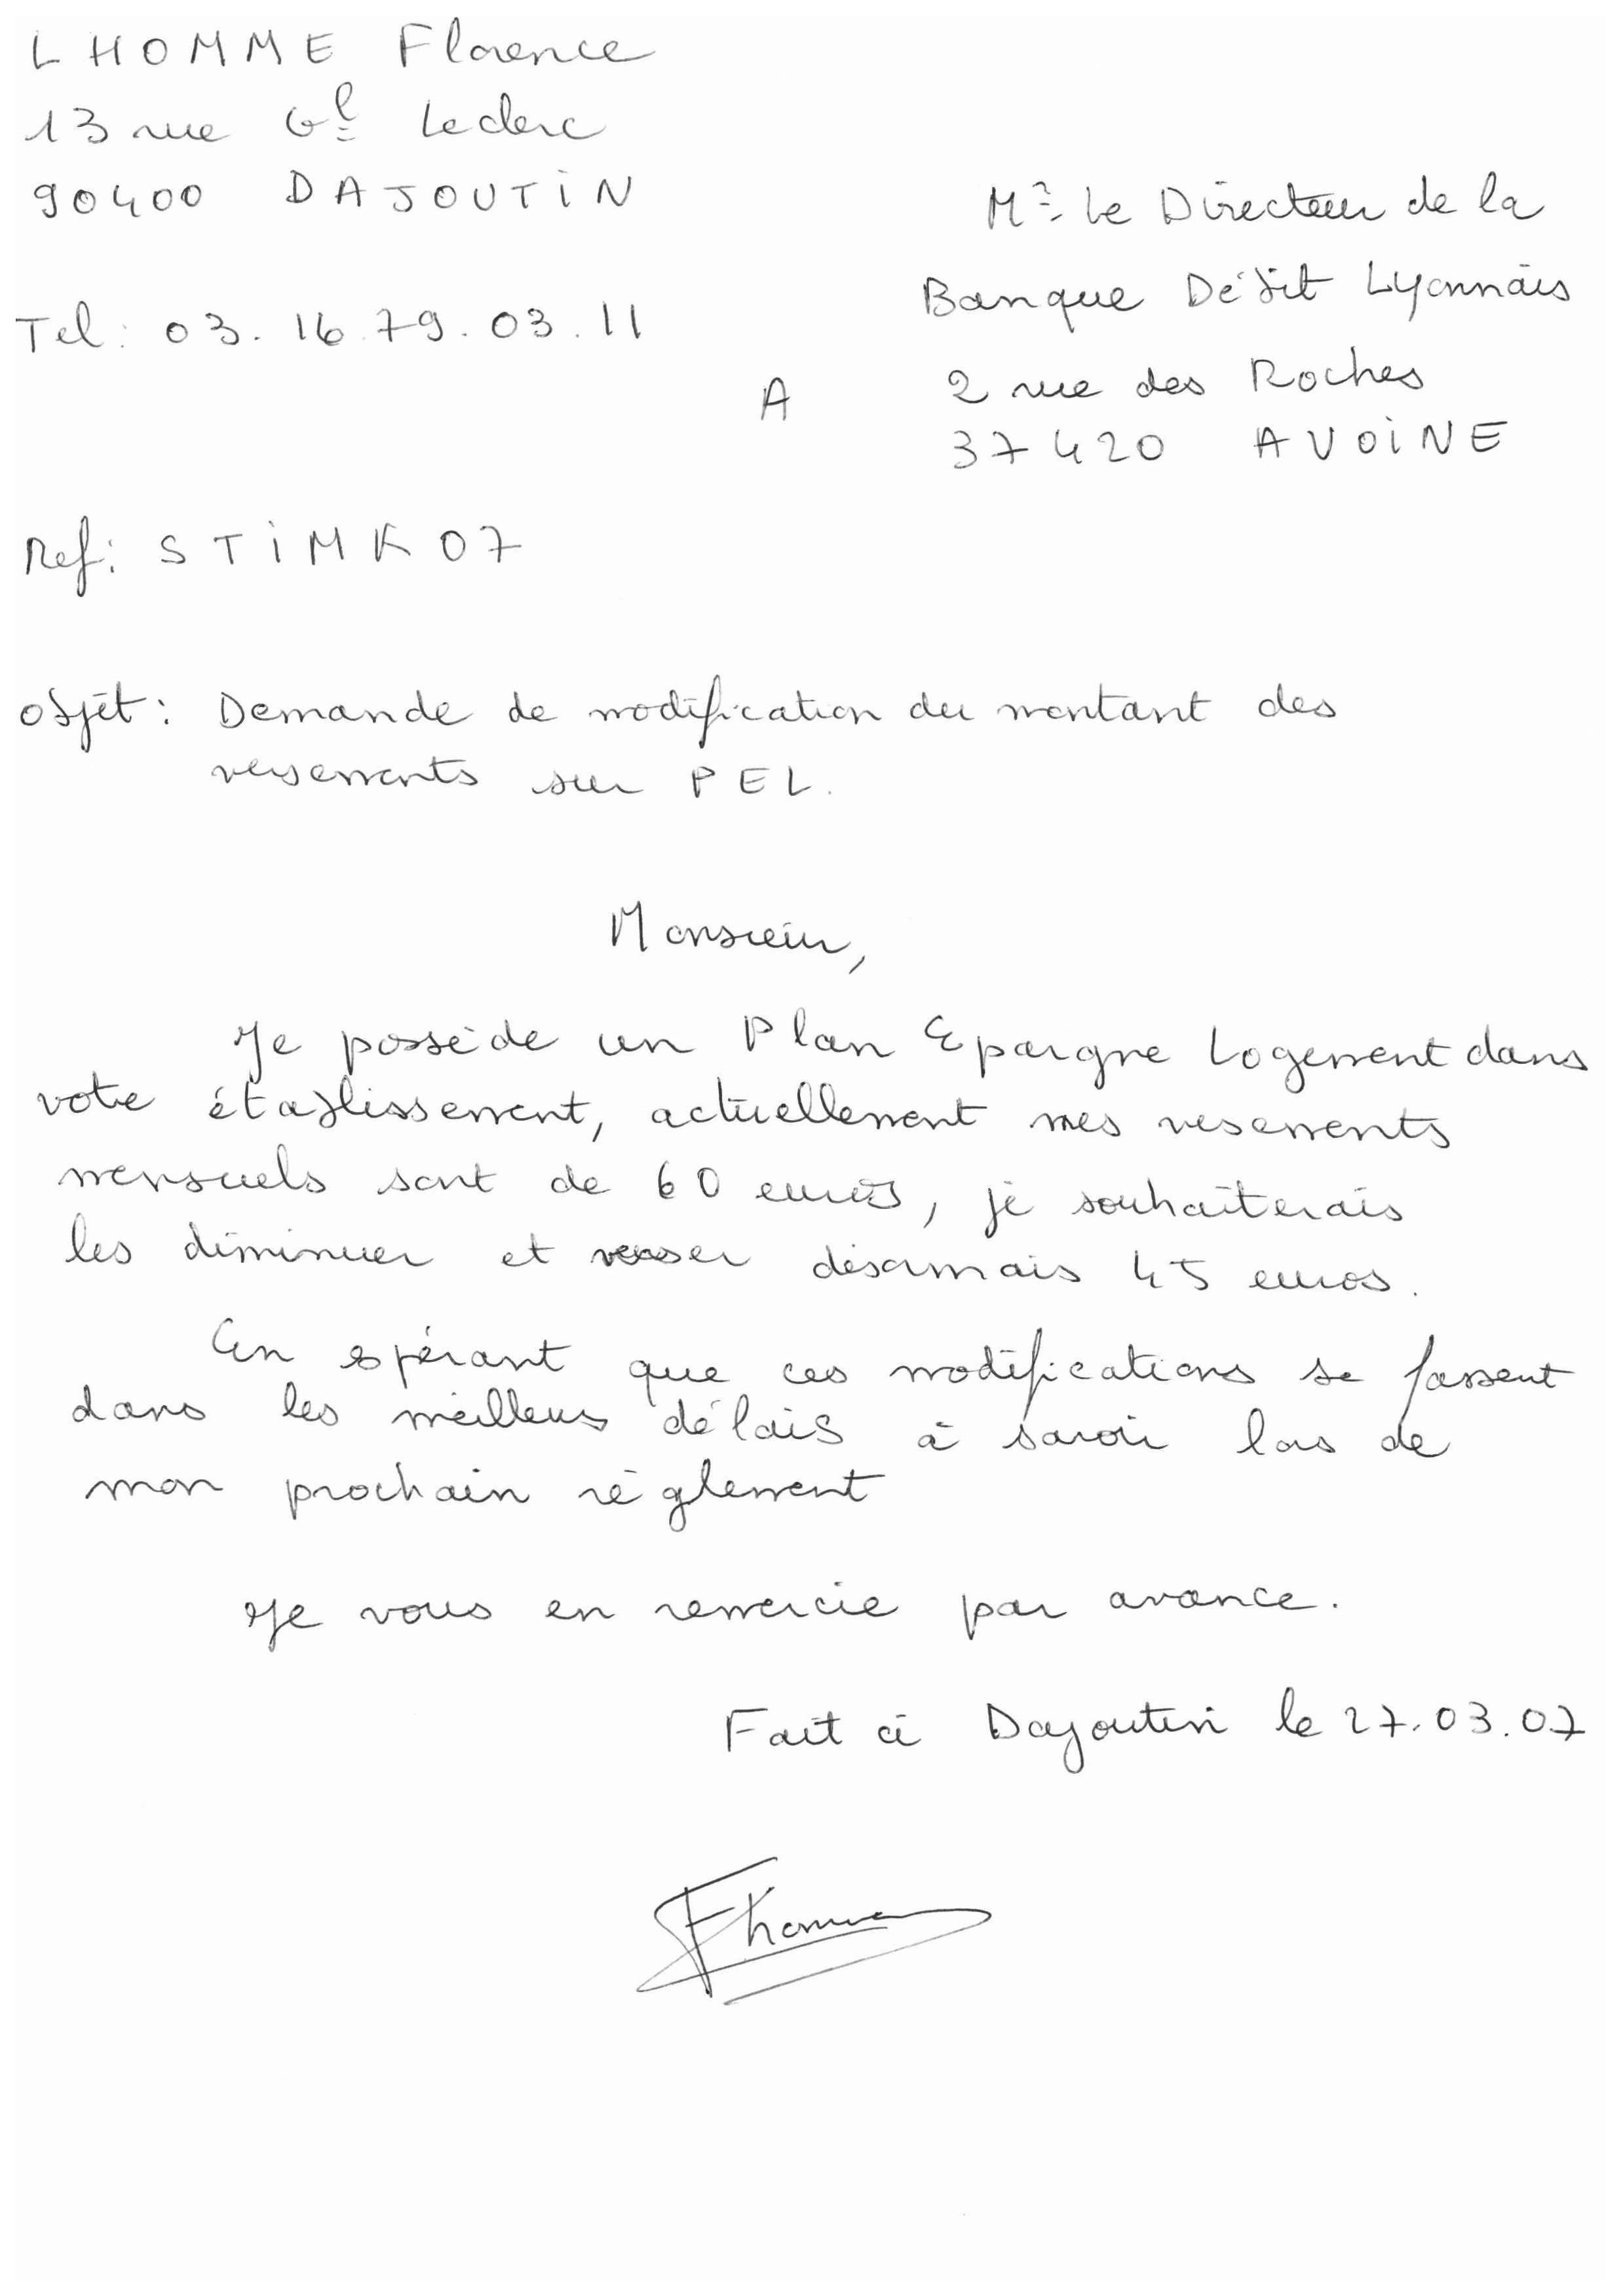 LHOMME Florence
13 rue Gl Leclerc
90400 DAJOUTIN
Mr Le Directeur de la
Banque Débit Lyonnais
Tel: 03.16.79.03.11
A 2 rue des Roches
37420 AVOINE
Ref: STIMK07
Objet: Demande de modification du montant des
versements sur PEL.
Monsieur,
Je possède un Plan Epargne Logement dans
votre établissement, actuellement mes versements
mensuels sont de 60 euros, je souhaiterais
les diminuer et verser désormais 45 euros.
En espérant que ces modifications se fassent
dans les meilleurs délais à savoir lors de
mon prochain règlement
Je vous en remercie par avance.
Fait à Dajoutin le 27.03.07
Fhomme